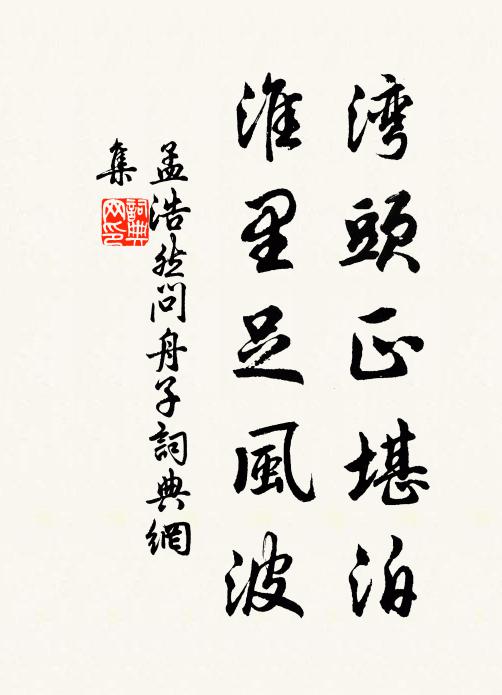 湾頭正堪泊
淮里足風波
孟浩然問舟子詞典網
集
詞典
网印